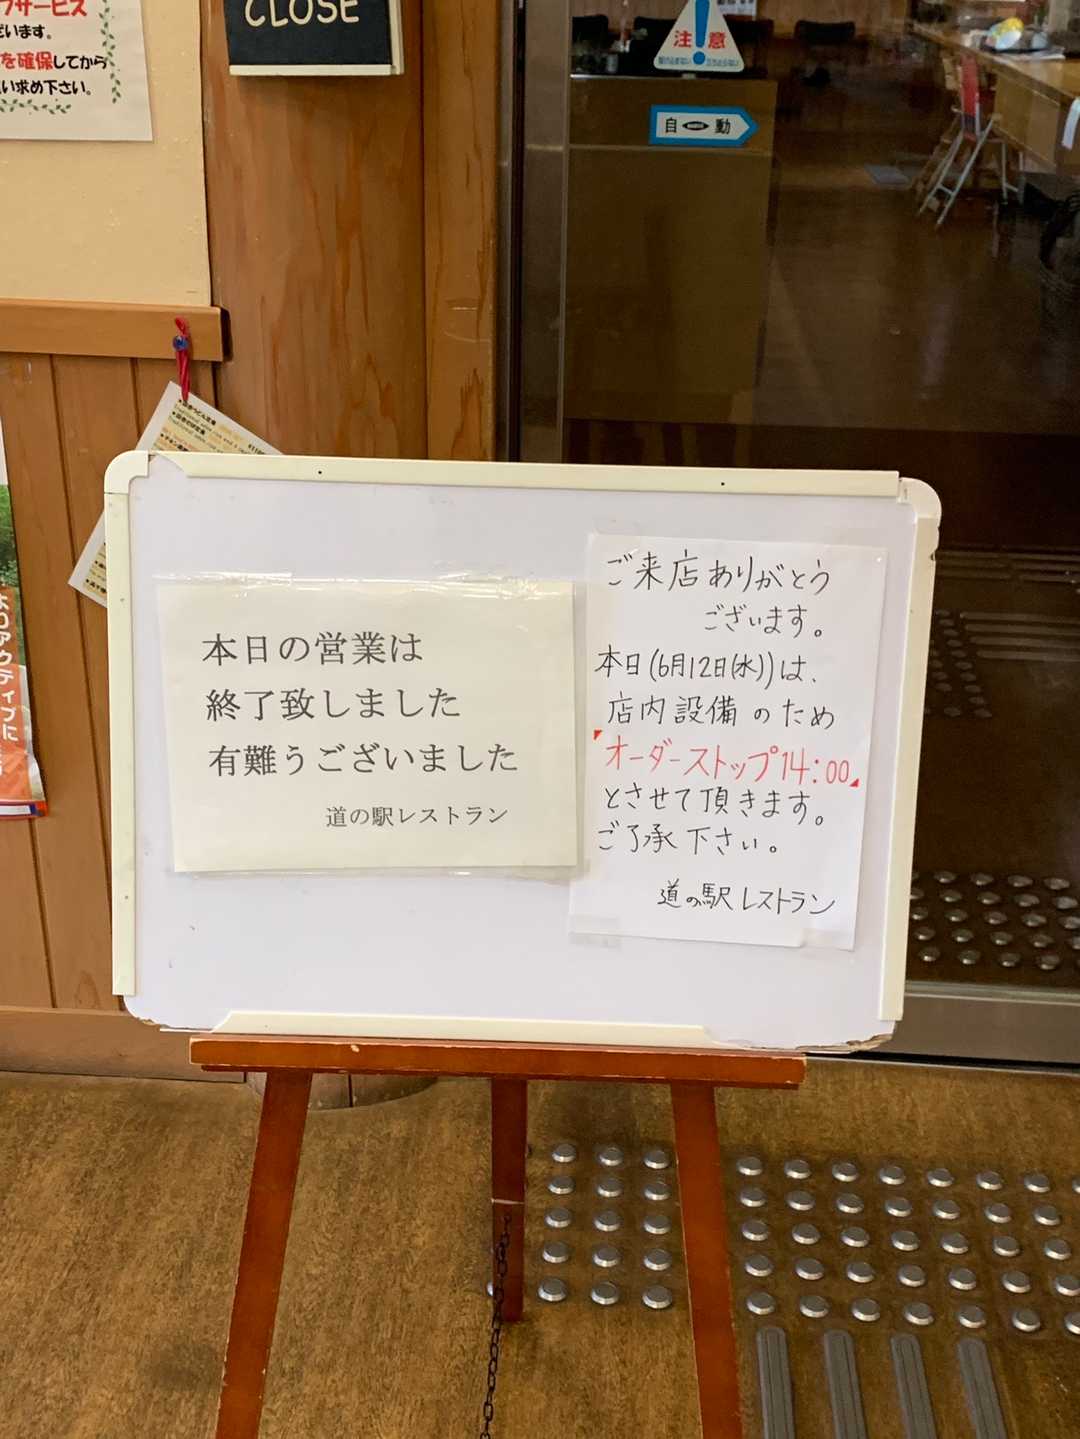 フサービス
ざいます。
を確保してから
い求め下さい。
CLOSE
注意
自動
本日の営業は
終了致しました
有難うございました
道の駅レストラン
ご来店ありがとう
ございます。
本日(6月12日(水))は、
店内設備のため
「オーダーストップ14:00」
とさせて頂きます。
ご了承下さい。
道の駅レストラン
よりアクティブに